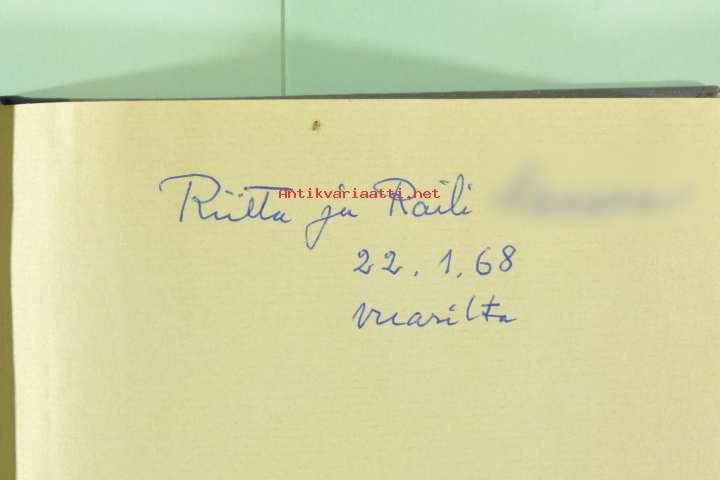 Riitta ja Raili
Antikvariaatti.net
22.1.68